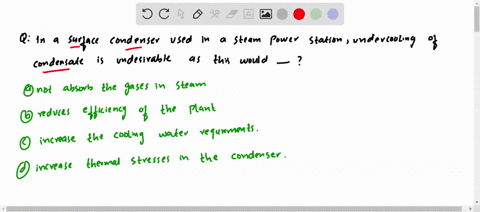 Q: In a surface condenser used in a steam power station, undercooling of
condensate is undesirable as this would __ ?
(a) not absorb the gases in steam
(b) reduces efficiency of the plant
(c) increase the cooling water requirments.
(d) increase thermal stresses in the condenser.